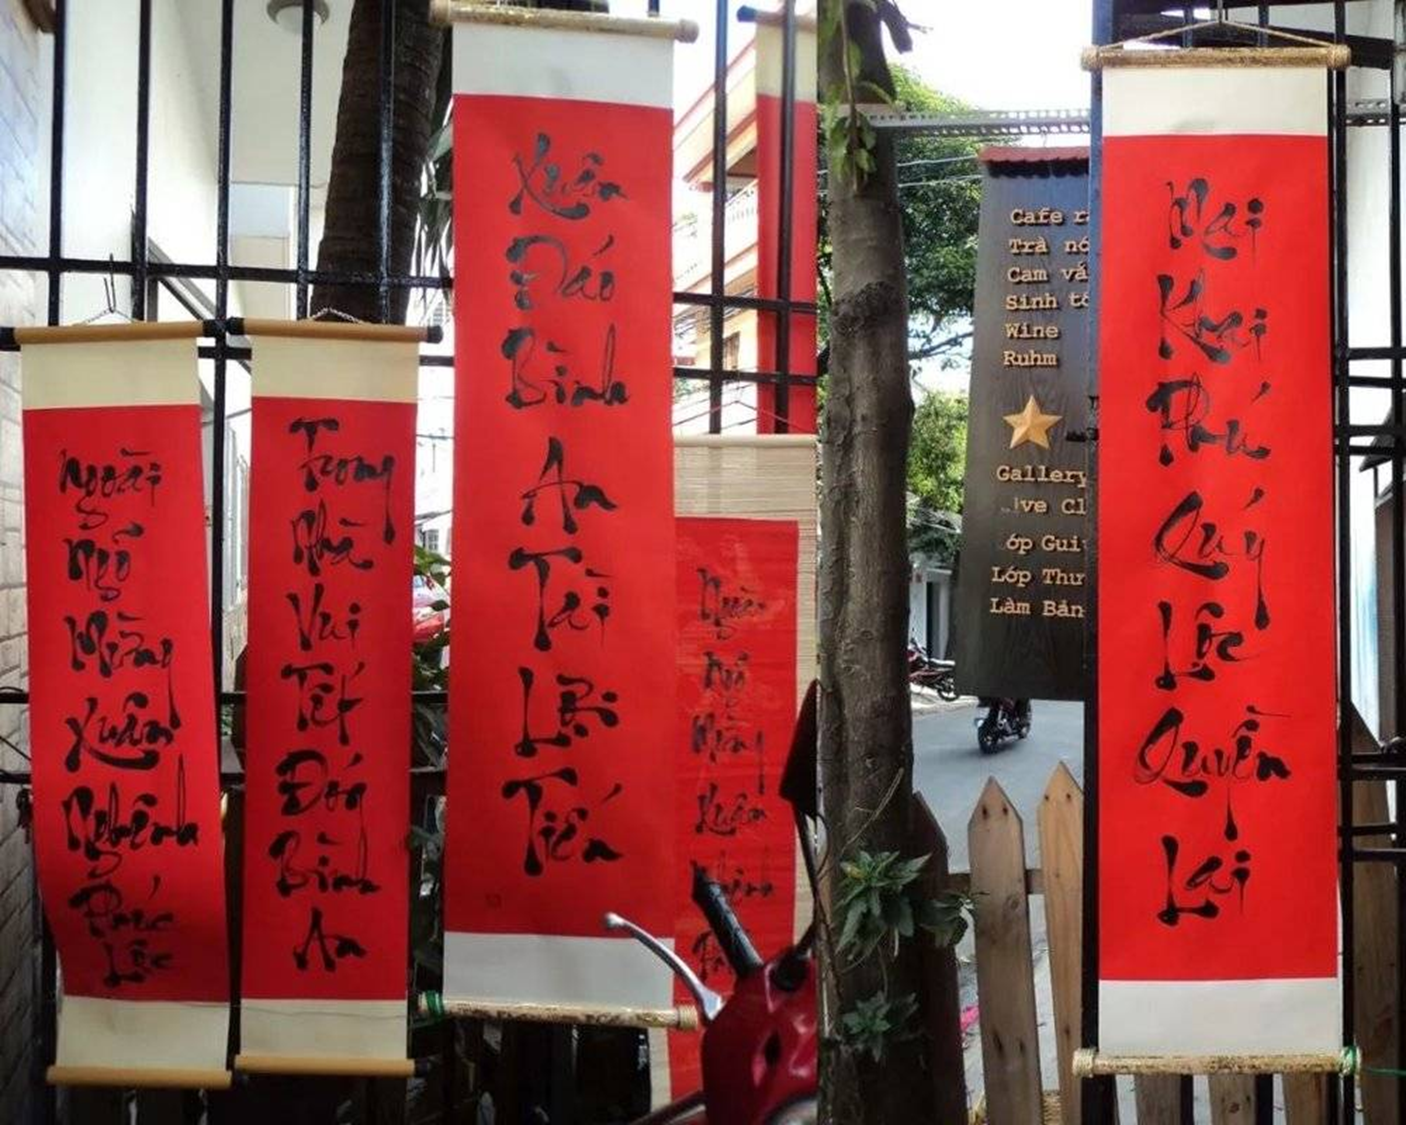 Ngoài
Ngõ
Mừng
Xuân
Nghênh
Phúc
Lộc
Trong
Nhà
Vui
Tết
Đón
Bình
An
Xuân
Đáo
Bình
An
Tài
Lợi
Tiến
Ngoài
Ngõ
Mừng
Xuân
Nghênh
Cafe
Trà
Cam
Sinh
Wine
Ruhm
Gallery
Lớp
Làm
Mai
Khai
Phú
Quý
Lộc
Quyền
Lai